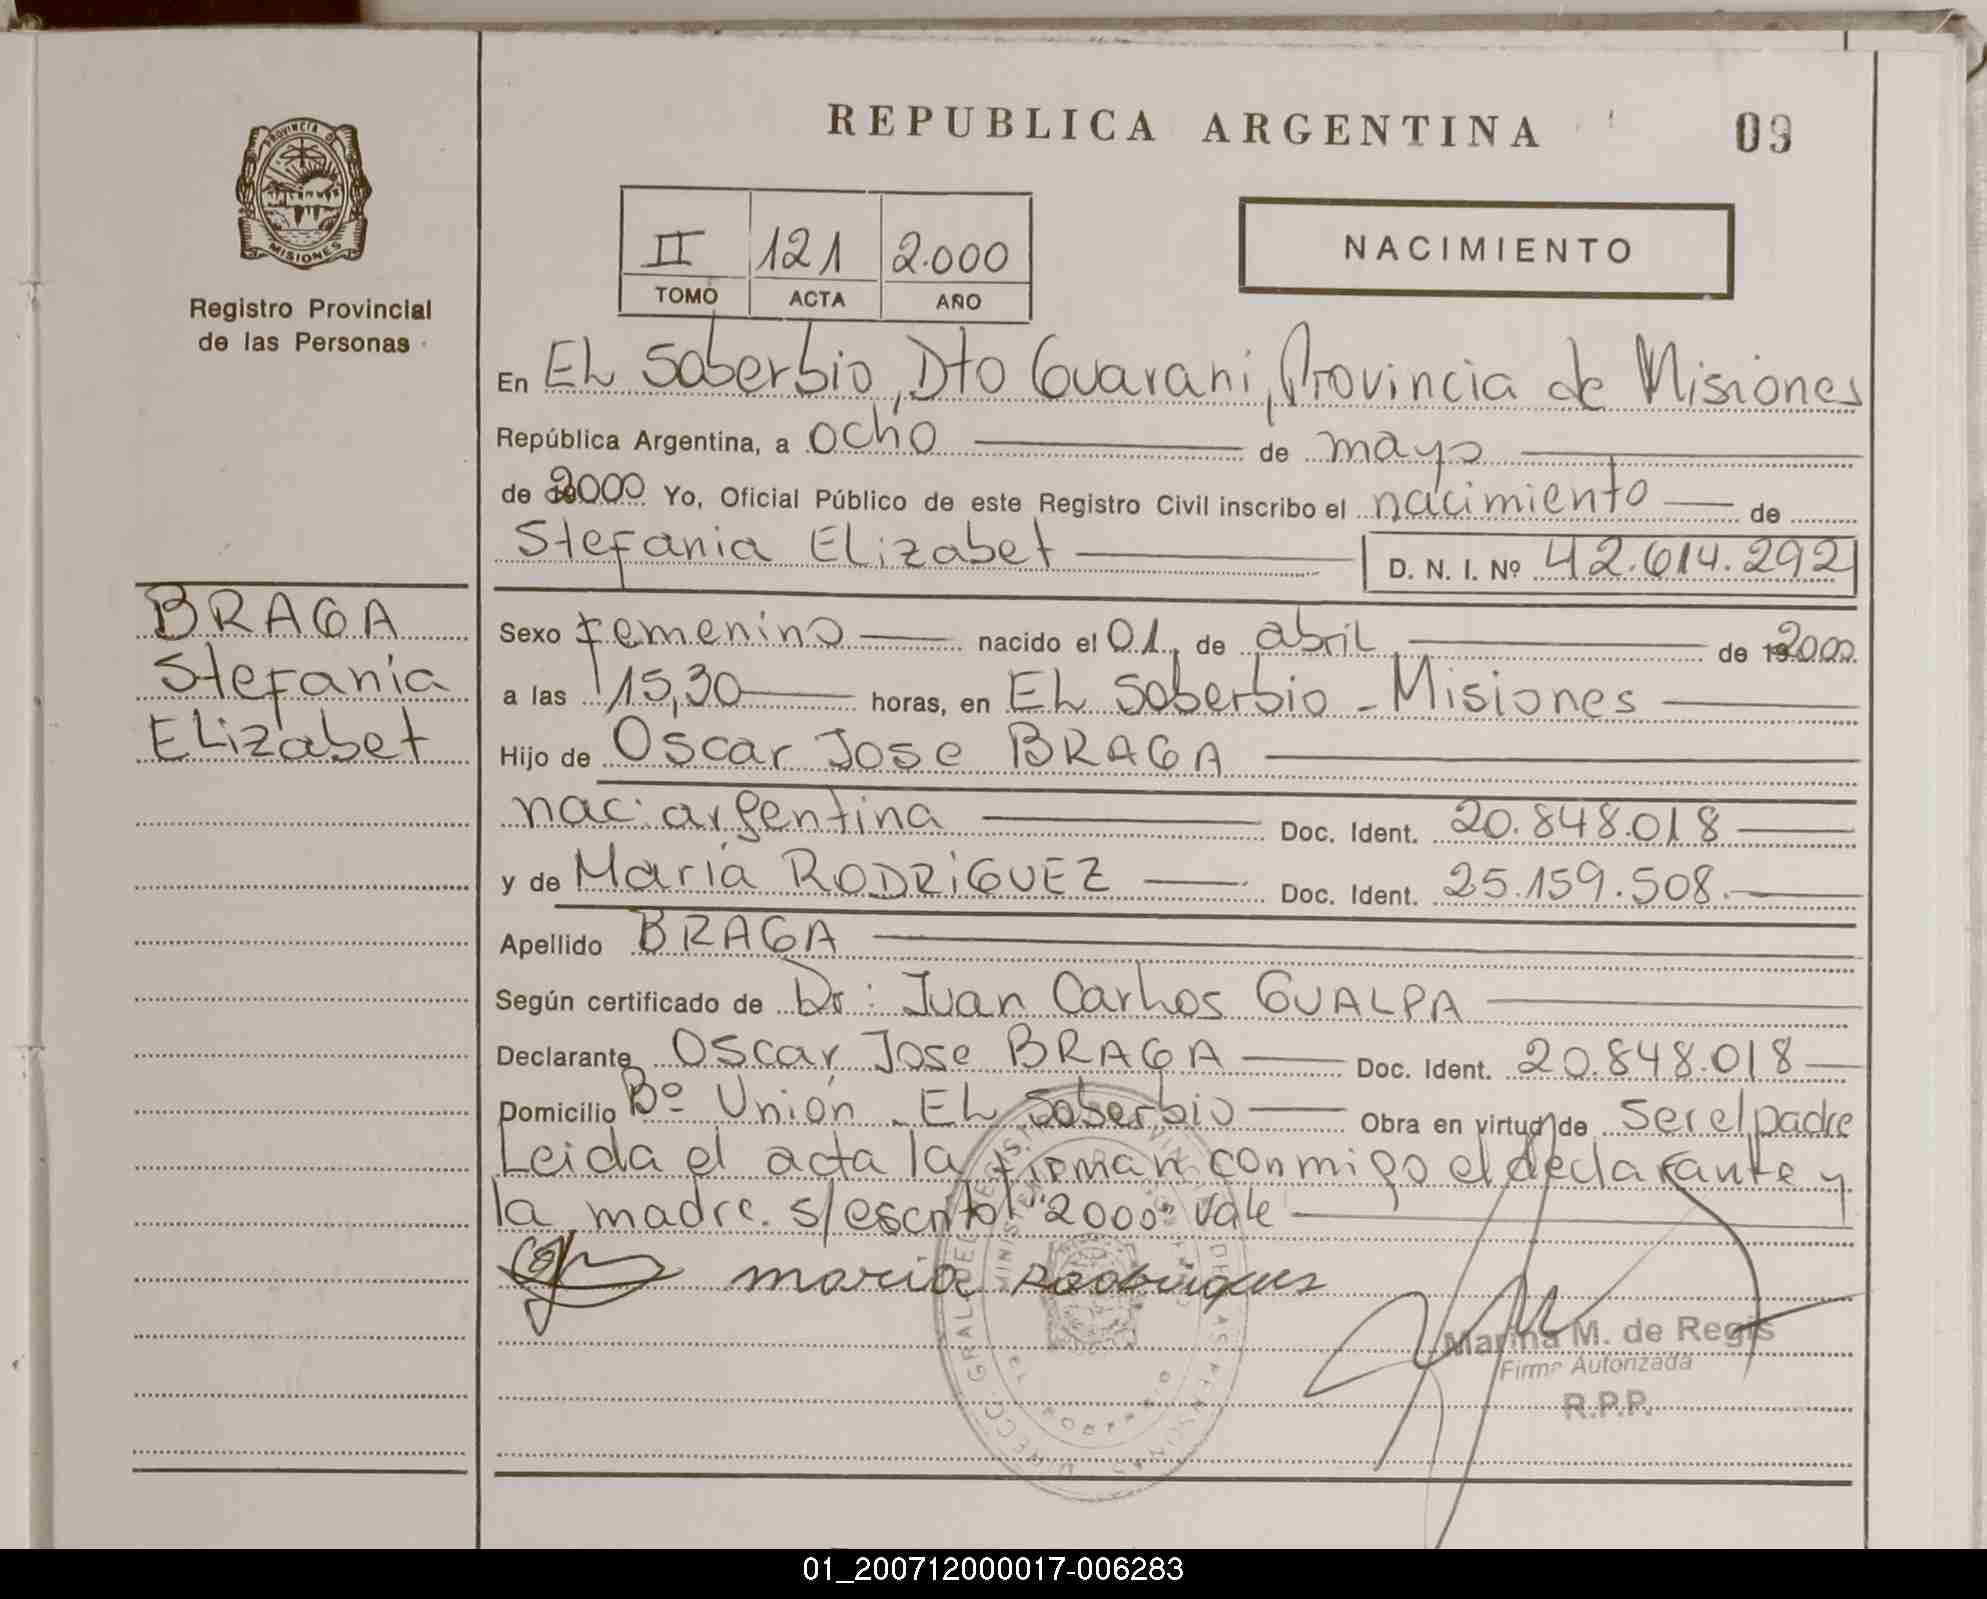 REPUBLICA ARGENTINA
09
PROVINCIA DE
MISIONES
Registro Provincial
de las Personas
II 121 2.000
TOMO ACTA AÑO
NACIMIENTO
En El Soberbio, Dto Guarani, Provincia de Misiones
República Argentina, a ocho de mayo
de 2000 Yo, Oficial Público de este Registro Civil inscribo el nacimiento de
Stefania Elizabet D. N. I. Nº 42.614.292
BRAGA
Stefania
Elizabet
Sexo femenino nacido el 01 de abril de 2000
a las 15,30 horas, en El Soberbio - Misiones
Hijo de Oscar Jose BRAGA
nac. argentina Doc. Ident. 20.848.018
y de María RODRiGUEZ Doc. Ident. 25.159.508.
Apellido BRAGA
Según certificado de Dr: Juan Carlos GUALPA
Declarante Oscar Jose BRAGA Doc. Ident. 20.848.018
Domicilio Bº Unión - El Soberbio Obra en virtud de ser el padre
Leida el acta la firman conmigo el declarante y
la madre. s/escrito "2000" vale
maria Rodrigues
Marina M. de Regis
Firma Autorizada
R.P.P.
01_200712000017-006283